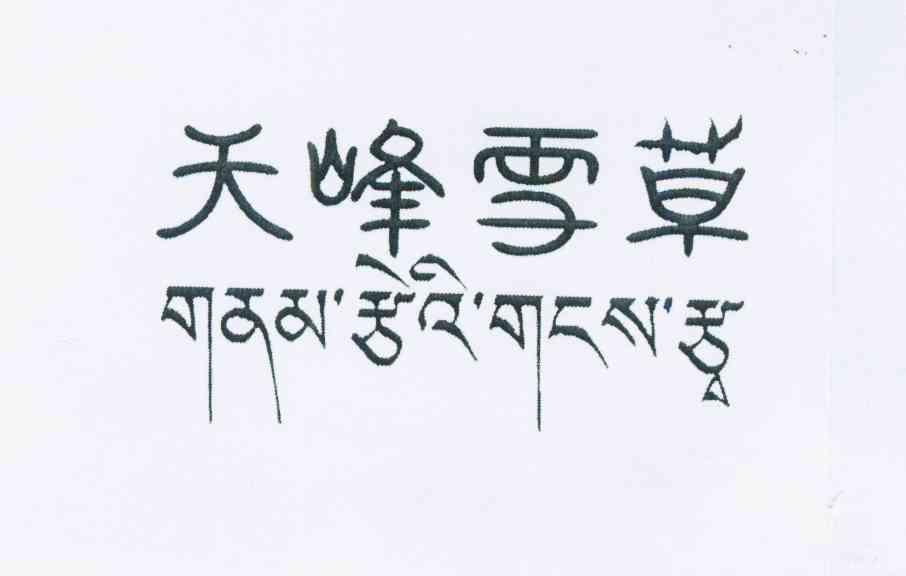 天峰雪草
གནམ་རྩེའི་གངས་རྩྭ